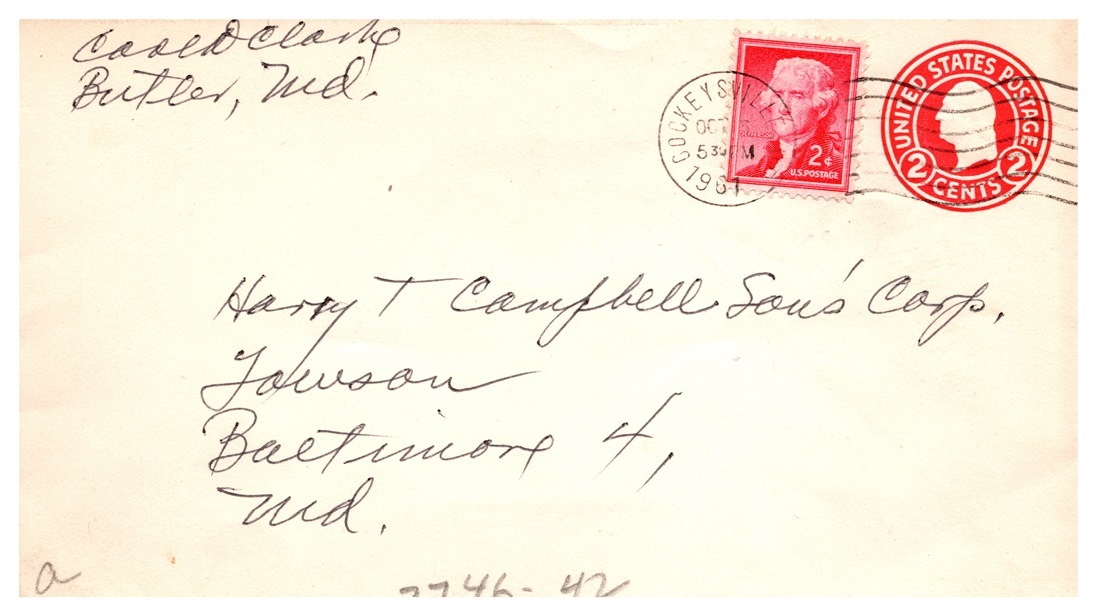 Clark
Butler, Md.
COCKEYSVILLE
OCT
5 PM
1961
JEFFERSON
2¢
U.S. POSTAGE
UNITED STATES POSTAGE
2 CENTS 2
Harry T Campbell Son's Corp.
Towson
Baltimore 4,
Md.
a
7746-42